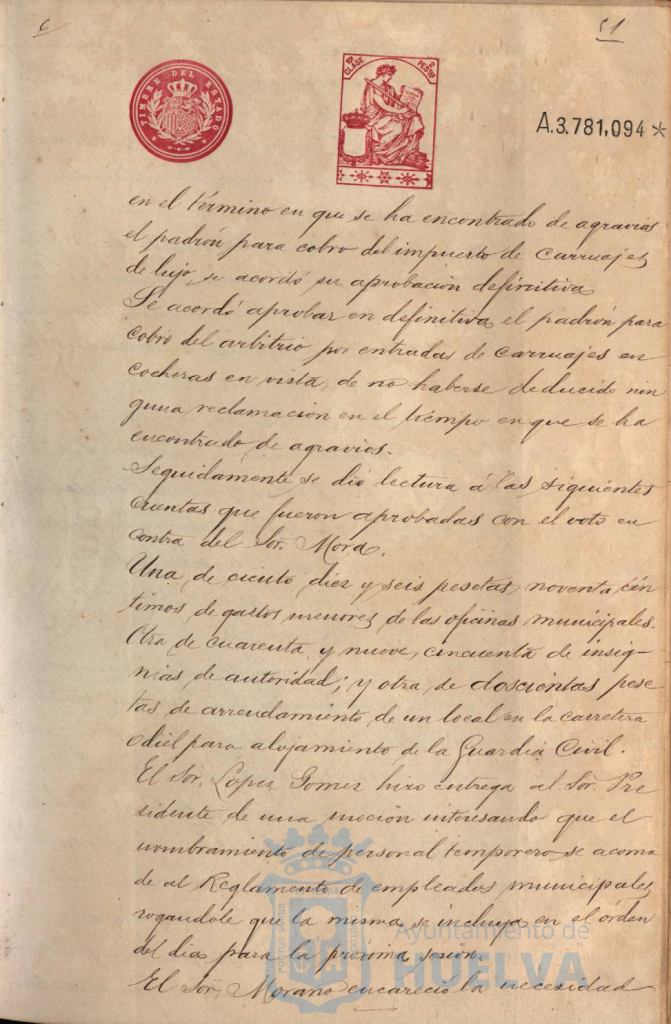 6
51
TIMBRE DEL ESTADO
CLASE
PESTAS
A.3.781,094*
en el término en que se ha encontrado de agravios
el padrón para cobro del impuesto de carruajes
de lujo, se acordó su aprobación definitiva.
Se acordó aprobar en definitiva el padrón para
cobro del arbitrio por entradas de carruajes en
cocheras en vista, de no haberse deducido nin
guna reclamación en el tiempo en que se ha
encontrado de agravios.
Seguidamente se dió lectura á las siguientes
cuentas que fueron aprobadas con el voto en
contra del Sor. Mora.
Una de ciento diez y seis pesetas noventa cén
timos de gastos menores de las oficinas municipales.
Otra de cuarenta y nueve, cincuenta de insig
nias de autoridad; y otra de doscientas pese
tas de arrendamiento de un local en la carretera
Odiel para alojamiento de la Guardia Civil.
El Sor. Lopez Gomez hizo entrega al Sor. Pre
sidente de una moción interesando que el
nombramiento de personal temporero se acomo
de al Reglamento de empleados municipales
rogandole que la misma se incluya en el órden
del dia para la próxima sesión.
El Sor. Morano encareció la necesidad
Ayuntamiento de
HUELVA